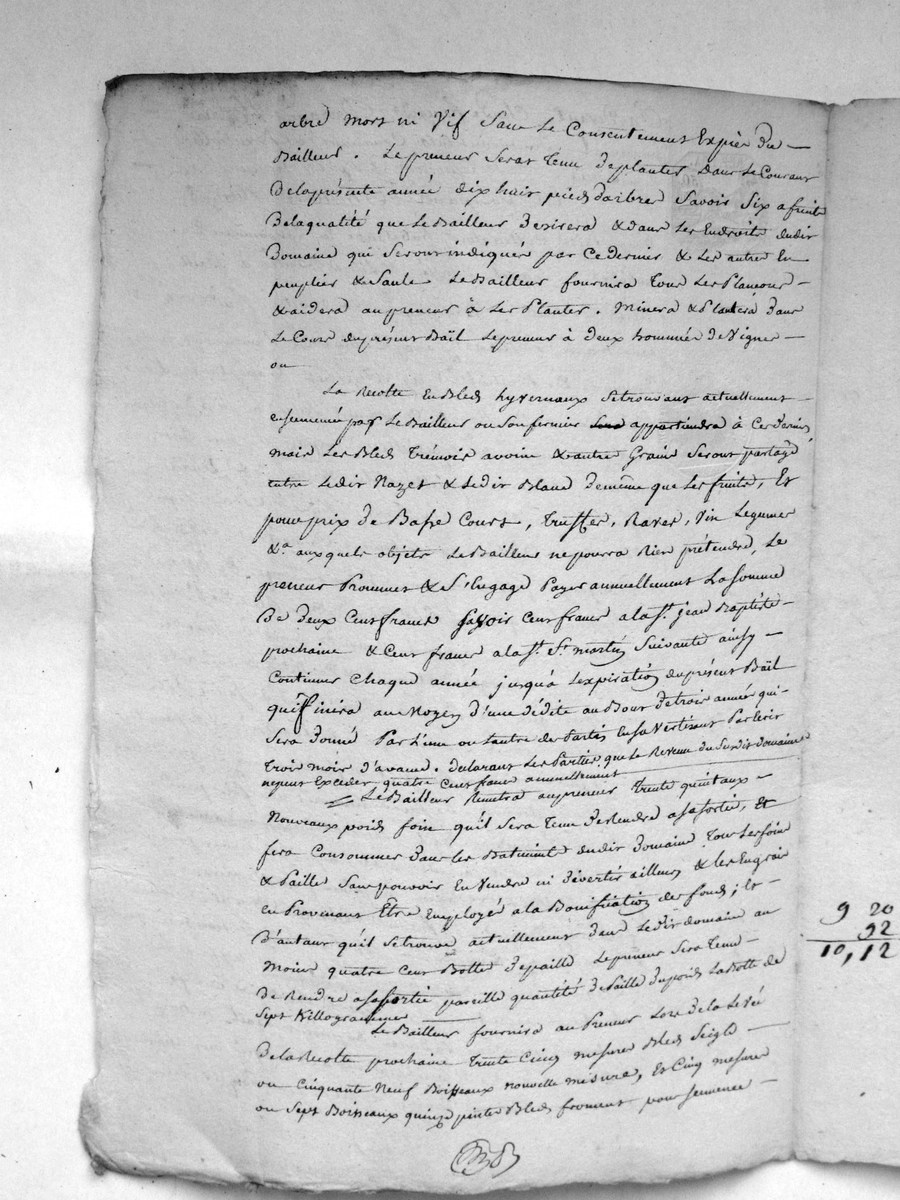 arbre mort ni vif sans le Consentement Exprès du —
Bailleur. Le preneur Sera tenu de planter dans le Courant
De la présente année dix huit pieds d'arbres Savoir Six a fruits
De la qualité que le Bailleur Desirera & dans les Endroits dudit
Domaine qui Seront indiqués par ce dernier & les autres En
peuplier & Saule Le Bailleur fournira tous les Plançons —
& aidera au preneur à Les Planter. Minera & Plantera dans
Le Cours du présent Bail Le preneur à deux hommée De Vignes —
ou
La Récolte En Bleds hyvernaux Se trouvant actuellement —
ensemencée par Le Bailleur ou Son fermier appartiendra à Ce dernier
mais Les Bleds Trémois avoine & autre Grains Seront partagé
entre Ledit Nazet & Ledit Blanc De même que Les fruits, Et
pour prix de Basse Cour, Truffes, Raves, Vin Legumes
&a auxquels objets Le Bailleur ne pourra Rien prétendre, Le
preneur Promet & S'Engage Payer annuellement La Somme
De Deux Cent francs Savoir Cent francs a la St. jean Baptiste —
prochaine & Cent francs a la St. martin Suivante ainsy —
Continuer Chaque année jusqu'à L'expiration du présent Bail
qui finira au Moyen D'une Dédite au Bout De trois années qui —
Sera Donné Par L'une ou L'autre des Parties En S'avertissant Par Ecrit
trois mois D'avance. Declarant Les Parties que le Revenu du Susdit Domaine
ne peut Excéder quatre Cent francs annuellement
Le Bailleur Remettra au preneur trente quintaux —
Nouveaux poids foin qu'il Sera Tenu De rendre a Sa Sortie, Et
fera Consommer Dans les Batiments dudit Domaine Tous Les foins
& Paille Sans pouvoir En Vendre ni Divertir ailleurs & les Engrais
en Provenant Etre Employé a la Bonification des fonds; Et
D'autant qu'il Se trouve actuellement Dans Ledit domaine au
Moins quatre Cent Botte De paille Le preneur Sera Tenu —
De Rendre a Sa Sortie pareille quantité De Paille Du poids La Botte de
Sept Killogrammes
Le Bailleur fournira au Preneur Lors de la Levée
De la Recolte prochaine Trente Cinq mesures Bled Seigle —
ou Cinquante Neuf Boisseaux nouvelle mesure, Et Cinq mesures
ou Sept Boisseaux quinze pintes Bled froment pour Semence —
9 20
92
10,12